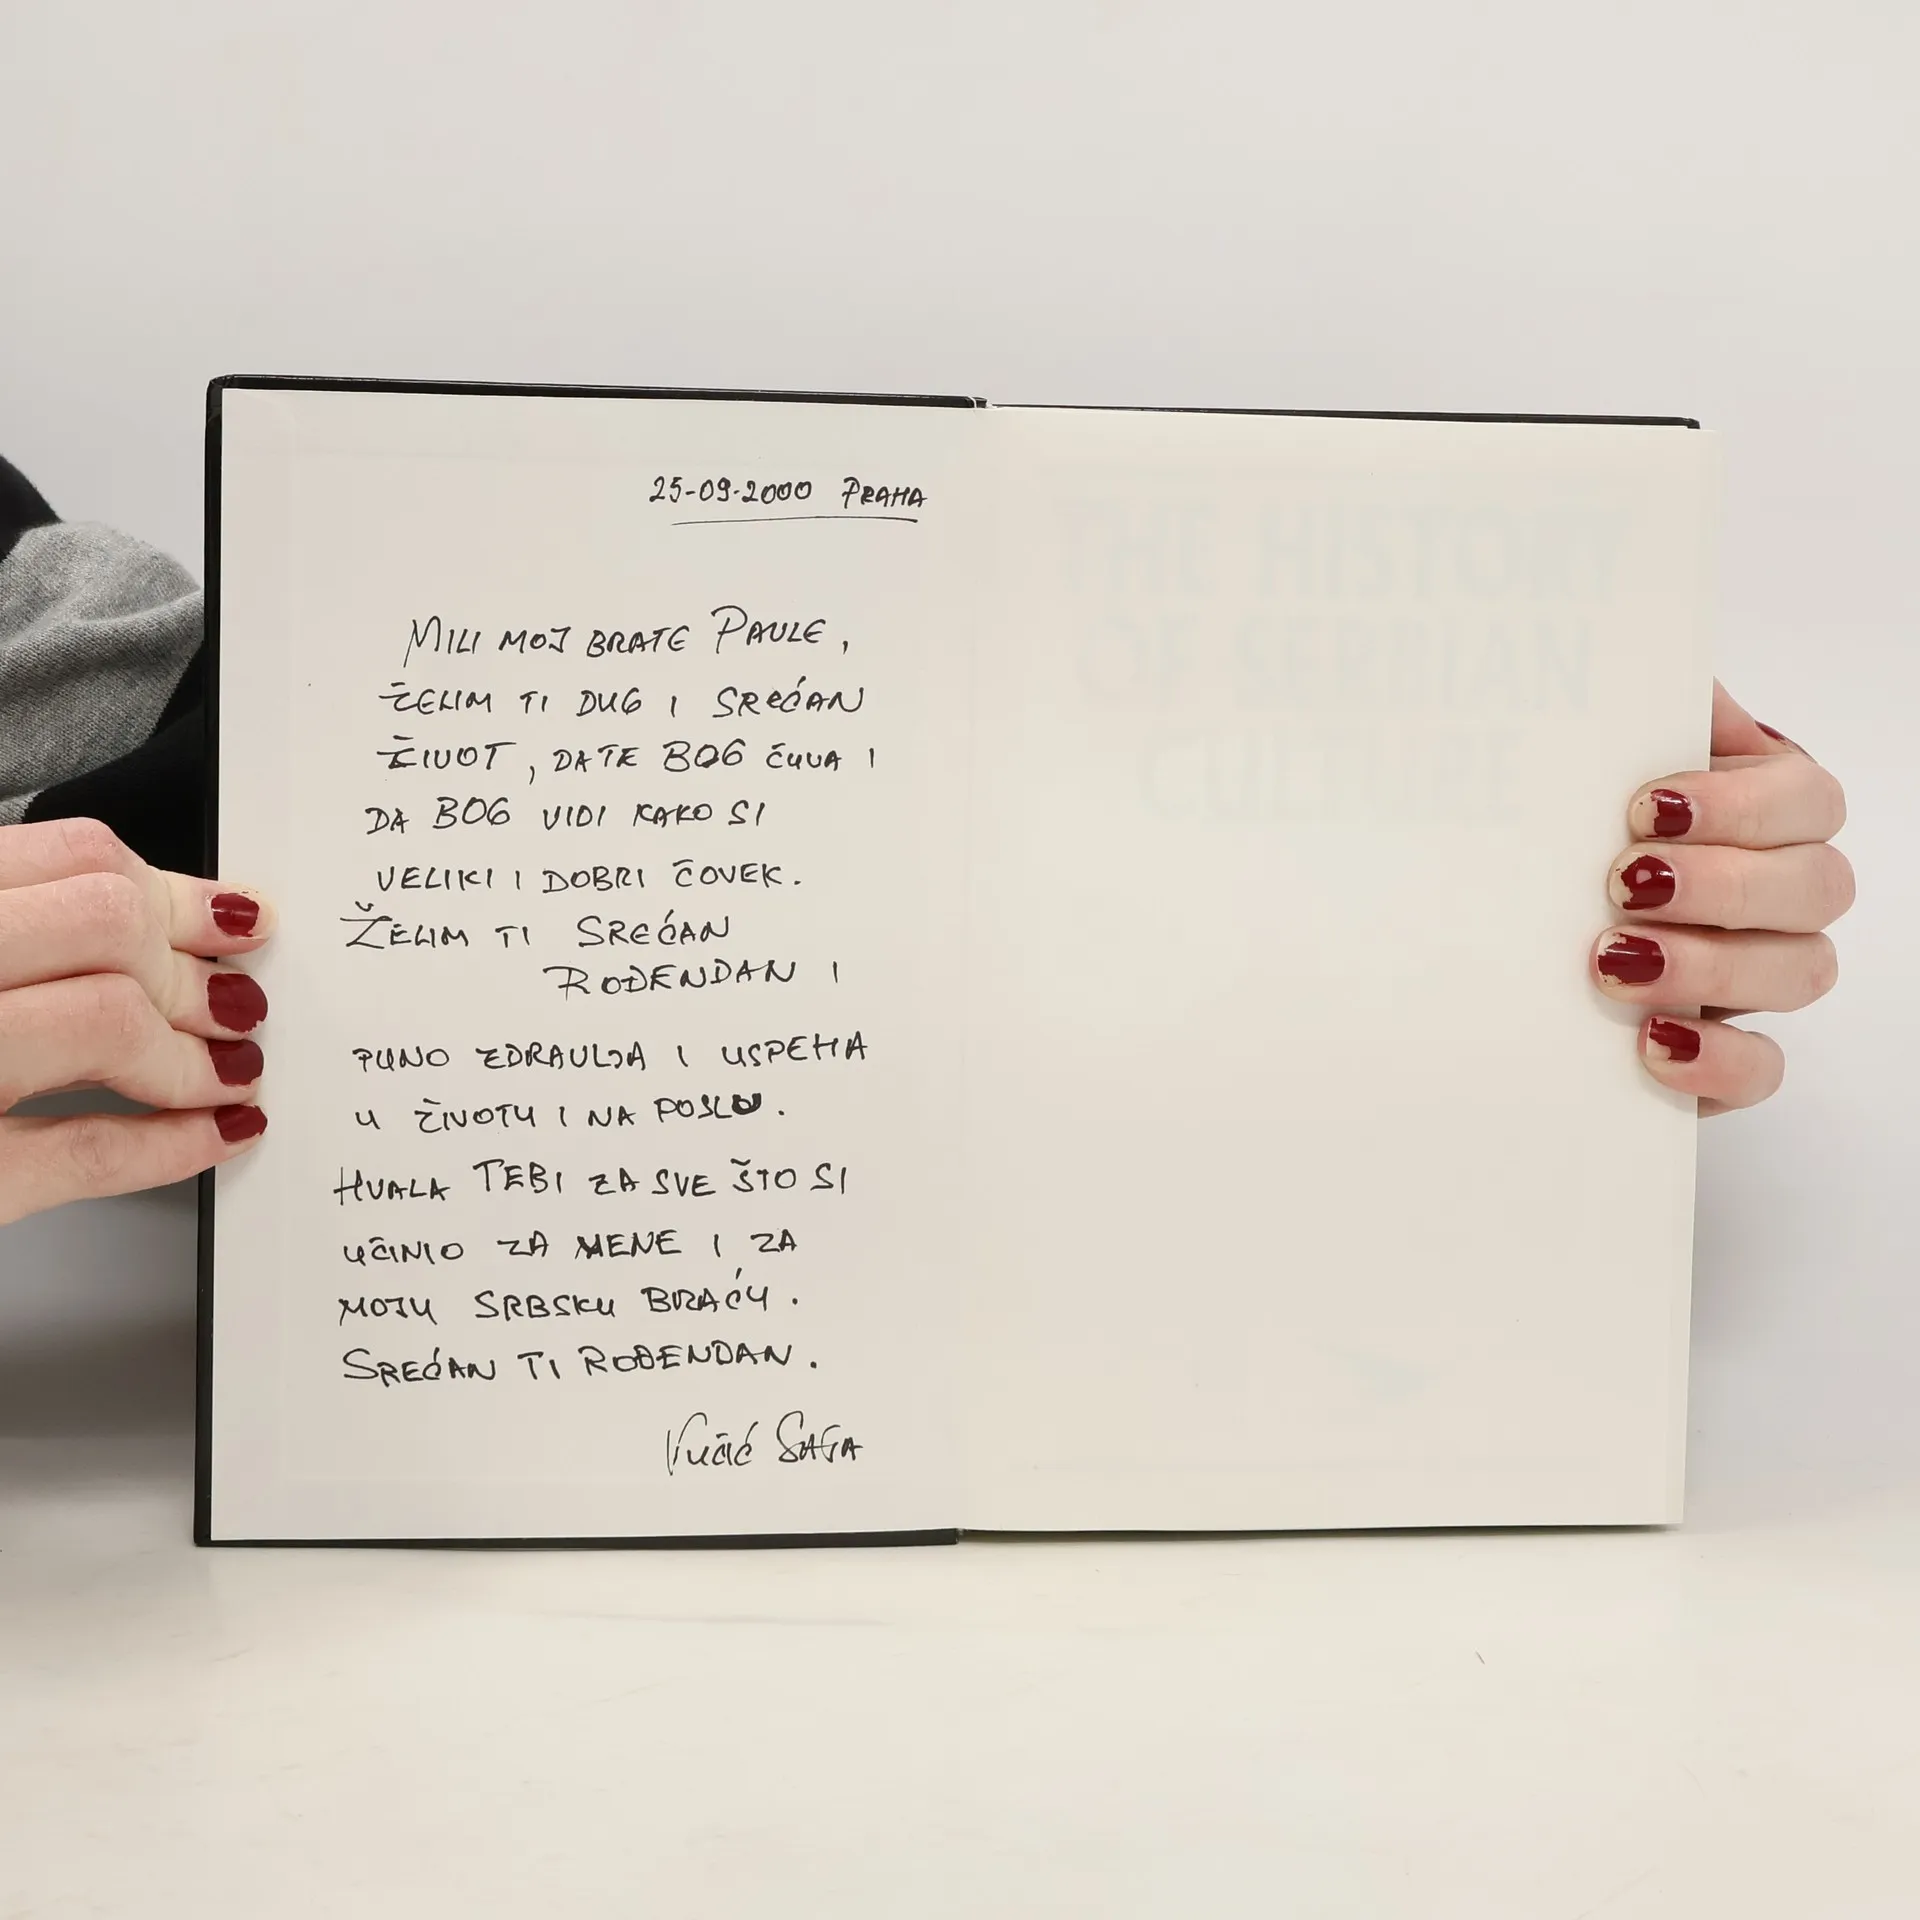 25-09-2000 PRAHA
MILI MOJ BRATE PAULE,
ŽELIM TI DUG I SREĆAN
ŽIVOT, DA TE BOG ČUVA I
DA BOG VIDI KAKO SI
VELIKI I DOBRI ČOVEK.
ŽELIM TI SREĆAN
ROĐENDAN I
PUNO ZDRAVLJA I USPEHA
U ŽIVOTU I NA POSLU.
HVALA TEBI ZA SVE ŠTO SI
UČINIO ZA MENE I ZA
MOJU SRBSKU BRAĆU.
SREĆAN TI ROĐENDAN.
Vučić SAŠA
THE HISTORY
OF SERBIAN
CULTURE